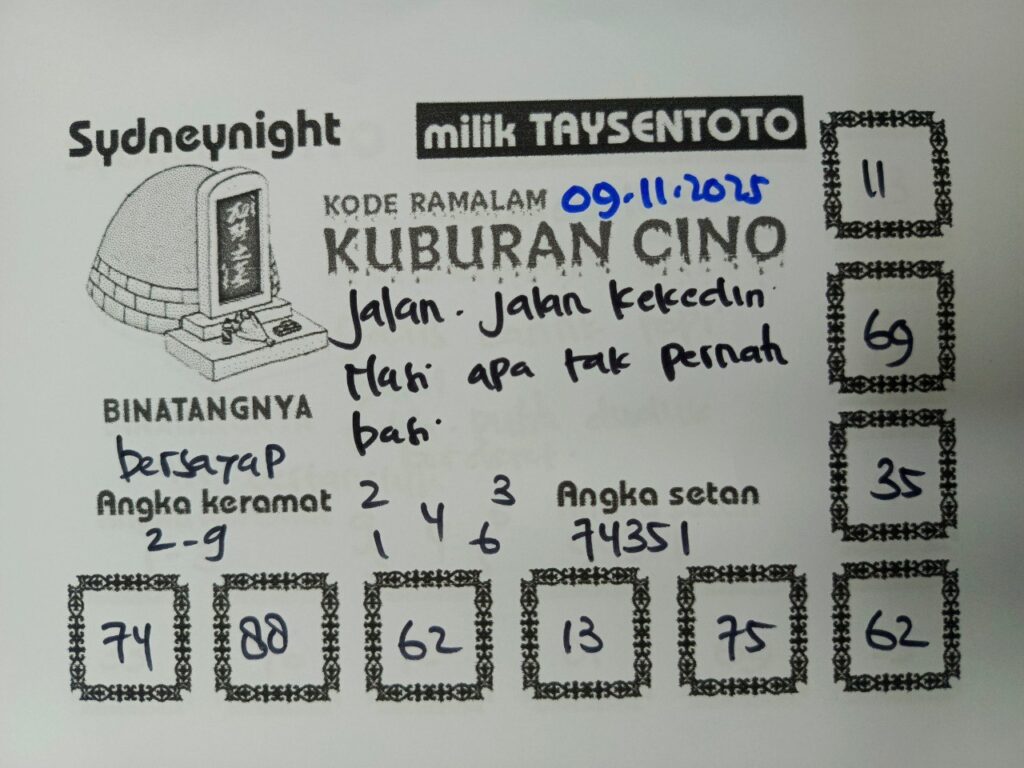 Sydneynight
milik TAYSENTOTO
KODE RAMALAM 09.11.2025
KUBURAN CINO
Jalan. Jalan kekedin
Hasi apa tak pernah
basi.
BINATANGNYA
bersayap
Angka keramat
2-9
2 3
4
1 6
Angka setan
74351
11
69
35
74 88 62 13 75 62